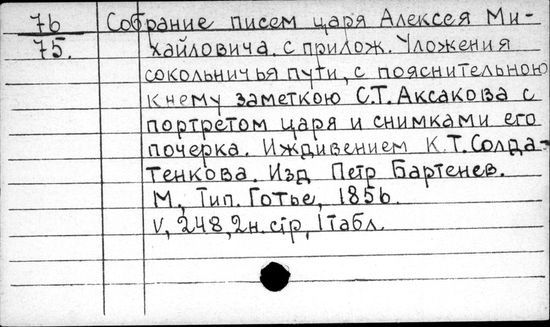 76 Собрание писем царя Алексея Ми-
75. хайловича. с прилож. Уложения
сокольничья пути, с пояснительною
к нему заметкою С.Т. Аксакова с
портретом царя и снимками его
почерка. Иждивением К.Т. Солда-
тенкова. Изд Петр Бартенев.
М., Тип. Готье, 1856.
V, 248, 2 н. стр, 1 табл.